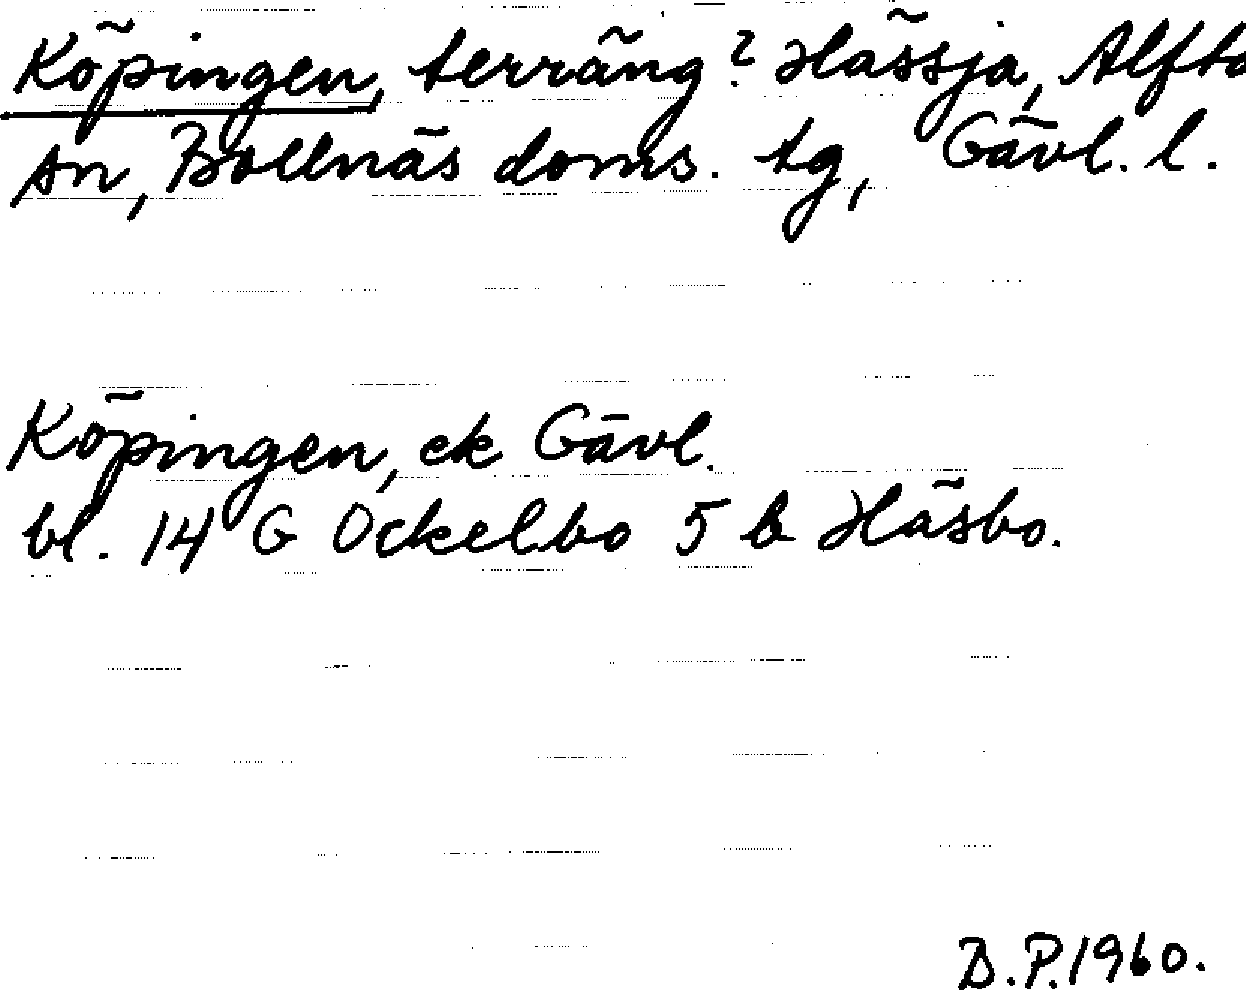 Köpingen, terräng? Hässja, Alfta
sn, Bollnäs doms. tg, Gävl. l.
Köpingen, ek Gävl.
bl. 14 G Ockelbo 5 b Häsbo.
D.P.1960.